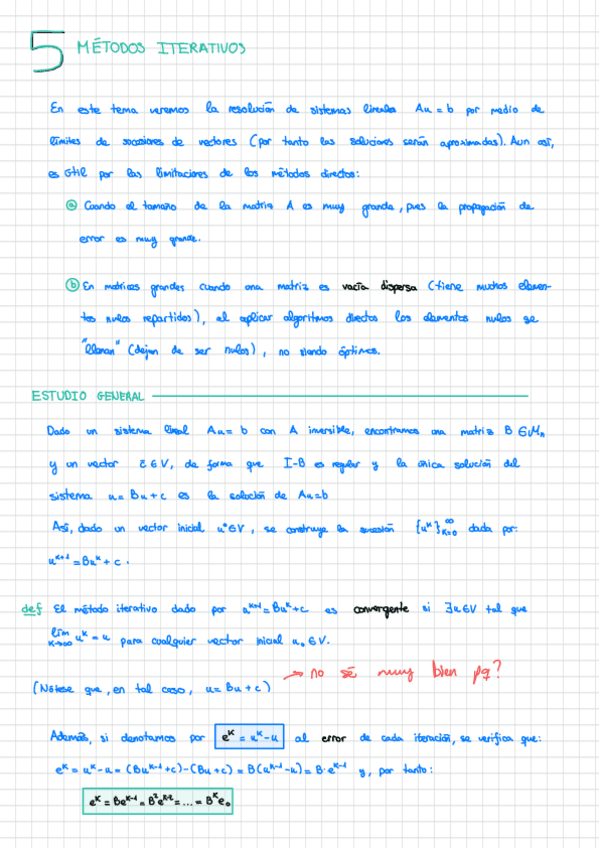 5 MÉTODOS ITERATIVOS
En este tema veremos la resolución de sistemas lineales Au = b por medio de
límites de sucesiones de vectores (por tanto las soluciones serán aproximadas). Aun así,
es útil por las limitaciones de los métodos directos:
ⓐ Cuando el tamaño de la matriz A es muy grande, pues la propagación de
error es muy grande.
ⓑ En matrices grandes cuando una matriz es vacía dispersa (tiene muchos elemen-
tos nulos repartidos), al aplicar algoritmos directos los elementos nulos se
"llenan" (dejan de ser nulos), no siendo óptimos.
ESTUDIO GENERAL
Dado un sistema lineal Au = b con A inversible, encontramos una matriz B ∈ Mₙ
y un vector c ∈ V, de forma que I-B es regular y la única solución del
sistema u = Bu + c es la solución de Au=b
Así, dado un vector inicial u⁰∈V, se construye la sucesión {uᵏ}ₖ₌₀^∞ dada por:
uᵏ⁺¹ = Buᵏ + c.
def El método iterativo dado por uᵏ⁺¹ = Buᵏ + c es convergente si ∃u∈V tal que
lím k→∞ uᵏ = u para cualquier vector inicial u₀ ∈ V.
→ no sé muy bien pq?
(Nótese que, en tal caso, u = Bu + c)
Además, si denotamos por eᵏ = uᵏ - u al error de cada iteración, se verifica que:
eᵏ = uᵏ - u = (Buᵏ⁻¹ + c) - (Bu + c) = B(uᵏ⁻¹ - u) = B·eᵏ⁻¹ y, por tanto:
eᵏ = Beᵏ⁻¹ = B²eᵏ⁻² = ... = Bᵏe₀